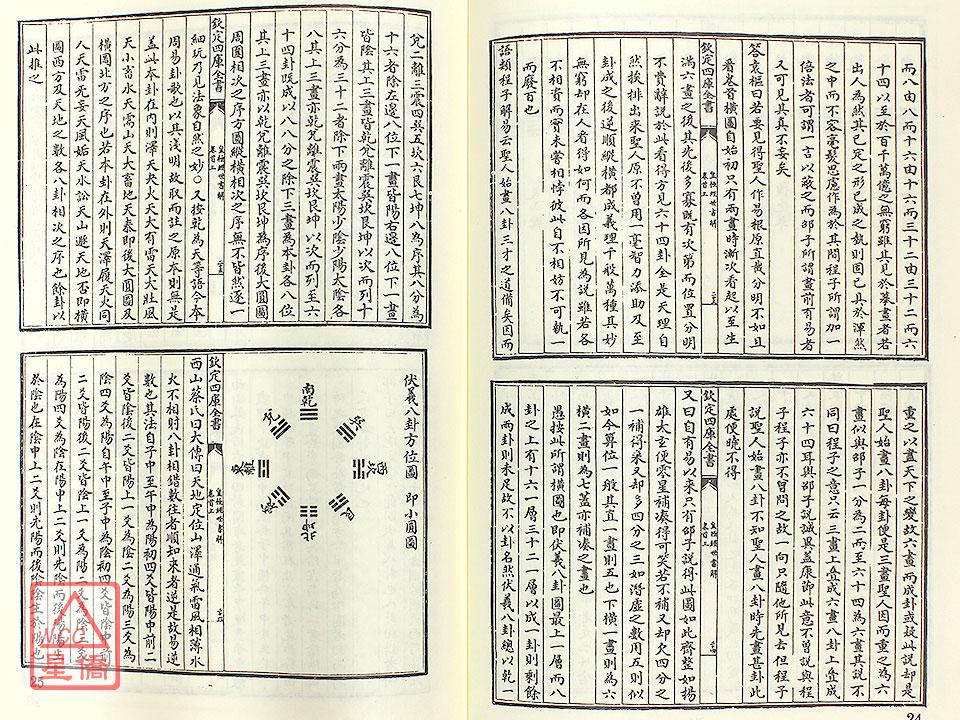 而八由八而十六由十六而三十二由三十二而六
十四以至於百千萬億之無窮雖其見於摹畫者若
出人為然其已定之形已成之勢則固已具於渾然
之中而不容毫髮思慮作為於其間程子所謂加一
倍法者可謂一言以蔽之而邵子所謂畫前有易者
又可見其真不妄矣
答袁樞曰若要見得聖人作易根原直截分明不如且
看卷首橫圖自始初只有兩畫時漸次看起以至生
欽定四庫全書
皇極經世書解
卷首上
滿六畫之後其先後多寡既有次第而位置分明
不費辭說於此看得方見六十四卦全是天理自
然挨排出來聖人原不曾用一毫智力添助及至
卦成之後逆順縱橫都成義理千般萬種其妙
無窮却在人看得如何而各因所見為說雖若各
不相資而實未嘗相悖彼此自不相妨不可執一
而廢百也
語類程子解易云聖人始畫八卦三才之道備矣因而
重之以盡天下之變故六畫而成卦或疑此說却是
聖人始畫八卦每卦便是三畫聖人因而重之為六
畫似與邵子一分為二而至六十四為六畫其說不
同曰程子之意只云三畫上疊成六畫八卦上疊成
六十四耳與邵子說誠異蓋康節此意不曾說與程
子程子亦不曾問之故一向只隨他所見去但程子
說聖人始畫八卦不知聖人畫八卦時先畫甚卦此
處便曉不得
欽定四庫全書
皇極經世書解
卷首上
又曰自有易以來只有邵子說得此圖如此齊整如揚
雄太玄便零星補湊得可笑若不補又却欠四分之
一補得來又却多四分之三如潛虛之數用五則似
如今算位一般其直一畫則五也下橫一畫則為六
橫二畫則為七蓋亦補湊之畫也
愚按此所謂橫圖也即伏羲八卦圖最上一層而八
卦之上有十六一層三十二一層以成一卦則剩餘
成兩卦則未足故不以卦名然伏羲八卦總以乾一
24
兌二離三震四巽五坎六艮七坤八為序其八分為
十六者除左邊八位下一畫皆陽右邊八位下一畫
皆陰其上三畫皆乾兌離震巽坎艮坤以次而列十
六分為三十二者除下兩畫太陽少陰少陽太陰各
八其上三畫亦乾兌離震巽坎艮坤以次而列至六
十四卦既成以八八分之除下三畫為本卦各八位
其上三畫亦以乾兌離震巽坎艮坤為序後大圓圖
周圓相次之序方圖縱橫相次之序無不皆然逐一
欽定四庫全書
皇極經世書解
卷首上
細玩乃見法象自然之妙○又按乾為天等語今本
周易卦歌也以其淺明故取而註之原本則無是
蓋此本卦在內則澤天夬火天大有雷天大壯風
天小畜水天需山天大畜地天泰即後大圓圖及
橫圖北方之序也若本卦在外則天澤履天火同
人天雷无妄天風姤天水訟天山遯天地否即橫
圖西方及天地之數各八卦相次之序也餘卦以
此推之
伏羲八卦方位圖 即小圓圖
南乾
兌
巽
東離
西坎
震
艮
北坤
西山蔡氏曰大傳曰天地定位山澤通氣雷風相薄水
火不相射八卦相錯數往者順知來者逆是故易逆
數也其法自子中至午中為陽初四爻皆陽中前二
欽定四庫全書
皇極經世書解
卷首上
爻皆陰後二爻皆陽上一爻為陰二爻為陽三爻為
陰四爻為陽自午中至子中為陰初四爻皆陰中前
二爻皆陽後二爻皆陰上一爻為陽二爻為陰三爻
為陽四爻為陰在陽中上二爻則先陰而後陽陽生
於陰也在陰中上二爻則先陽而後陰陰生於陽也
25
NCC
星僑